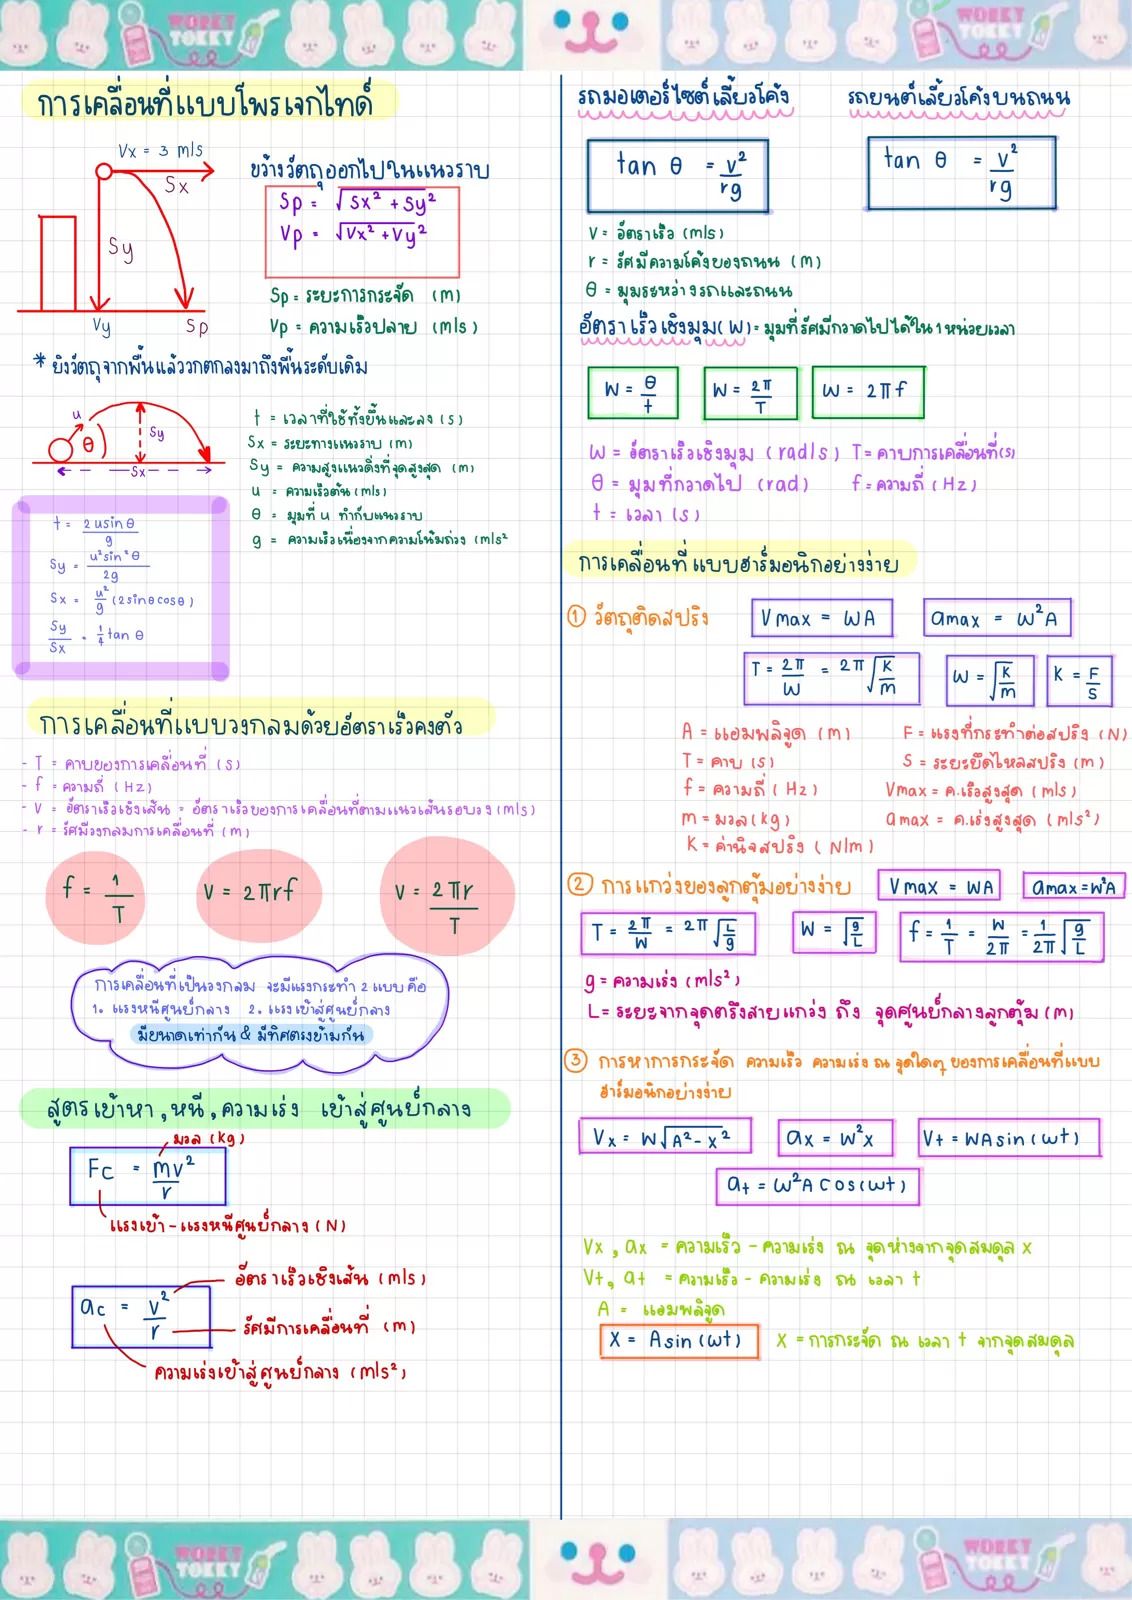 WORKY TOKKY
WORKY TOKKY
การเคลื่อนที่แบบโพรเจกไทด์
Vx = 3 m/s
Sx
Sy
Vy
Sp
ขว้างวัตถุออกไปในแนวราบ
Sp = √Sx² + Sy²
Vp = √Vx² + Vy²
Sp = ระยะการกระจัด (m)
Vp = ความเร็วปลาย (m/s)
* ยิงวัตถุจากพื้นแล้วตกลงมาถึงพื้นระดับเดิม
u
θ
Sy
Sx
t = เวลาที่ใช้ทั้งขึ้นและลง (s)
Sx = ระยะทางแนวราบ (m)
Sy = ความสูงแนวดิ่งที่จุดสูงสุด (m)
u = ความเร็วต้น (m/s)
θ = มุมที่ u ทำกับแนวราบ
g = ความเร็วเนื่องจากความโน้มถ่วง (m/s²
t = 2usinθ/g
Sy = u²sin²θ/2g
Sx = u²/g (2sinθcosθ)
Sy/Sx = 1/4 tan θ
การเคลื่อนที่แบบวงกลมด้วยอัตราเร็วคงตัว
- T = คาบของการเคลื่อนที่ (s)
- f = ความถี่ (Hz)
- v = อัตราเร็วเชิงเส้น = อัตราเร็วของการเคลื่อนที่ตามแนวเส้นรอบวง (m/s)
- r = รัศมีวงกลมการเคลื่อนที่ (m)
f = 1/T
v = 2πrf
v = 2πr/T
การเคลื่อนที่เป็นวงกลม จะมีแรงกระทำ 2 แบบ คือ
1. แรงหนีศูนย์กลาง 2. แรงเข้าสู่ศูนย์กลาง
มีขนาดเท่ากัน & มีทิศตรงข้ามกัน
สูตรเข้าหา, หนี, ความเร่ง เข้าสู่ศูนย์กลาง
มวล (kg)
Fc = mv²/r
แรงเข้า - แรงหนีศูนย์กลาง (N)
อัตราเร็วเชิงเส้น (m/s)
ac = v²/r
รัศมีการเคลื่อนที่ (m)
ความเร่งเข้าสู่ศูนย์กลาง (m/s²)
รถมอเตอร์ไซต์เลี้ยวโค้ง
รถยนต์เลี้ยวโค้งบนถนน
tan θ = v²/rg
tan θ = v²/rg
v = อัตราเร็ว (m/s)
r = รัศมีความโค้งของถนน (m)
θ = มุมระหว่างรถและถนน
อัตราเร็วเชิงมุม (W) = มุมที่รัศมีกวาดไปได้ใน 1 หน่วยเวลา
W = θ/t
W = 2π/T
ω = 2πf
W = อัตราเร็วเชิงมุม (rad/s) T = คาบการเคลื่อนที่(s)
θ = มุมที่กวาดไป (rad) f = ความถี่ (Hz)
t = เวลา (s)
การเคลื่อนที่แบบฮาร์มอนิกอย่างง่าย
① วัตถุติดสปริง
Vmax = WA
amax = W²A
T = 2π/W = 2π√K/m
W = √K/m
K = F/S
A = แอมพลิจูด (m)
F = แรงที่กระทำต่อสปริง (N)
T = คาบ (s)
S = ระยะยืดไหลสปริง (m)
f = ความถี่ (Hz)
Vmax = ค.เร็วสูงสุด (m/s)
m = มวล (kg)
amax = ค.เร่งสูงสุด (m/s²)
K = ค่านิจสปริง (N/m)
② การแกว่งของลูกตุ้มอย่างง่าย
Vmax = WA
amax = W²A
T = 2π/W = 2π√L/g
W = √g/L
f = 1/T = W/2π = 1/2π √g/L
g = ความเร่ง (m/s²)
L = ระยะจากจุดตรึงสายแกว่ง ถึง จุดศูนย์กลางลูกตุ้ม (m)
③ การหาการกระจัด ความเร็ว ความเร่ง ณ จุดใดๆ ของการเคลื่อนที่แบบ
ฮาร์มอนิกอย่างง่าย
Vx = W√A² - x²
ax = W²x
Vt = WAsin (ωt)
at = ω²A cos(ωt)
Vx, ax = ความเร็ว - ความเร่ง ณ จุดห่างจากจุดสมดุล x
Vt, at = ความเร็ว - ความเร่ง ณ เวลา t
A = แอมพลิจูด
X = Asin (ωt)
X = การกระจัด ณ เวลา t จากจุดสมดุล
WORKY TOKKY
WORKY TOKKY